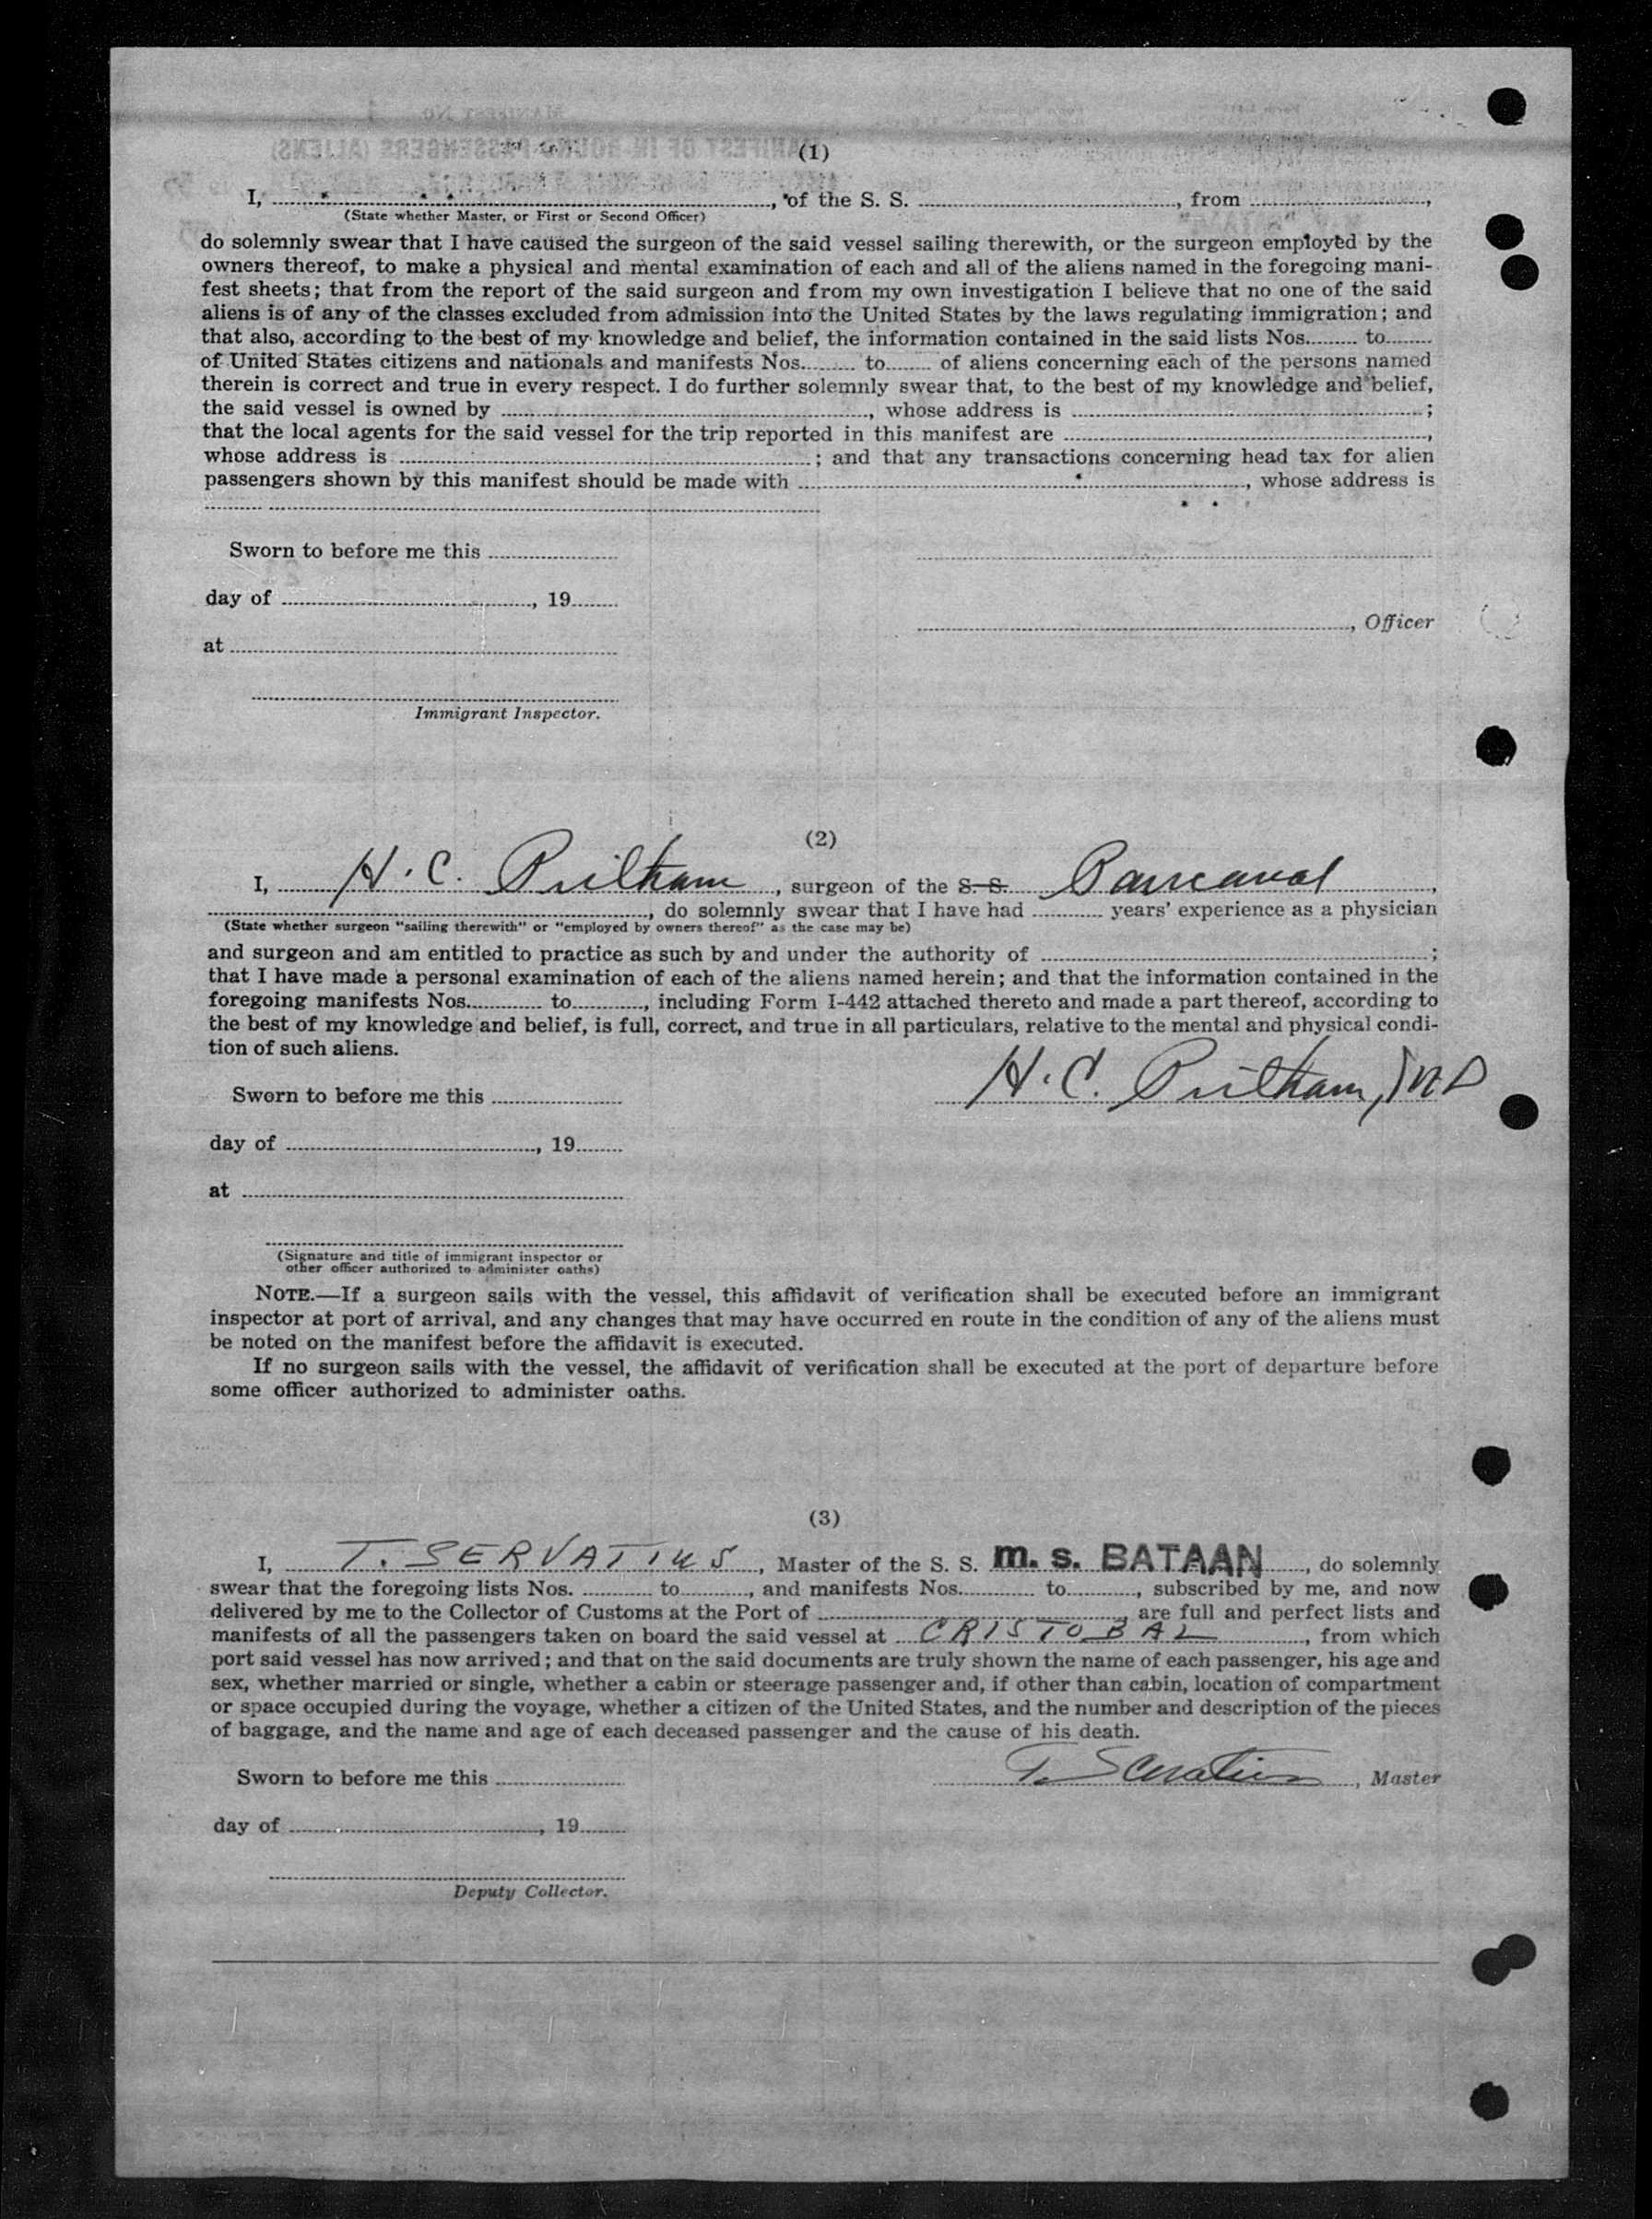 (1)
I, ........, of the S. S. ........, from ........,
(State whether Master, or First or Second Officer)
do solemnly swear that I have caused the surgeon of the said vessel sailing therewith, or the surgeon employed by the
owners thereof, to make a physical and mental examination of each and all of the aliens named in the foregoing mani-
fest sheets; that from the report of the said surgeon and from my own investigation I believe that no one of the said
aliens is of any of the classes excluded from admission into the United States by the laws regulating immigration; and
that also, according to the best of my knowledge and belief, the information contained in the said lists Nos........ to........
of United States citizens and nationals and manifests Nos........ to........ of aliens concerning each of the persons named
therein is correct and true in every respect. I do further solemnly swear that, to the best of my knowledge and belief,
the said vessel is owned by ........, whose address is ........;
that the local agents for the said vessel for the trip reported in this manifest are ........,
whose address is ........; and that any transactions concerning head tax for alien
passengers shown by this manifest should be made with ........, whose address is
........
Sworn to before me this ........
day of ........, 19........
........, Officer
at ........
Immigrant Inspector.
(2)
I, H. C. Pritham, surgeon of the S. S.
........, do solemnly swear that I have had ........ years' experience as a physician
(State whether surgeon "sailing therewith" or "employed by owners thereof" as the case may be)
and surgeon and am entitled to practice as such by and under the authority of ........;
that I have made a personal examination of each of the aliens named herein; and that the information contained in the
foregoing manifests Nos........ to........, including Form I-442 attached thereto and made a part thereof, according to
the best of my knowledge and belief, is full, correct, and true in all particulars, relative to the mental and physical condi-
tion of such aliens.
H. C. Pritham, MD
Sworn to before me this ........
day of ........, 19........
at ........
(Signature and title of immigrant inspector or
other officer authorized to administer oaths)
NOTE.—If a surgeon sails with the vessel, this affidavit of verification shall be executed before an immigrant
inspector at port of arrival, and any changes that may have occurred en route in the condition of any of the aliens must
be noted on the manifest before the affidavit is executed.
If no surgeon sails with the vessel, the affidavit of verification shall be executed at the port of departure before
some officer authorized to administer oaths.
(3)
I, T. SERVATIUS, Master of the S. S. m. s. BATAAN, do solemnly
swear that the foregoing lists Nos. ........ to........, and manifests Nos........ to........, subscribed by me, and now
delivered by me to the Collector of Customs at the Port of ........, are full and perfect lists and
manifests of all the passengers taken on board the said vessel at CRISTOBAL, from which
port said vessel has now arrived; and that on the said documents are truly shown the name of each passenger, his age and
sex, whether married or single, whether a cabin or steerage passenger and, if other than cabin, location of compartment
or space occupied during the voyage, whether a citizen of the United States, and the number and description of the pieces
of baggage, and the name and age of each deceased passenger and the cause of his death.
T. Servatius, Master
Sworn to before me this ........
day of ........, 19........
Deputy Collector.